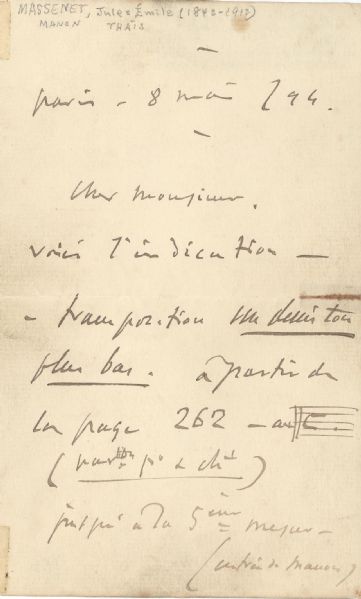 MASSENET, Jules Émile (1842-1912)
MANON THAÏS
Paris - 8 mai /94.
Cher Monsieur.
voici l'indication —
- transposition un demi ton
plus bas. à partir de
la page 262 - au C.
(part on p° & cht)
jusqu'à la 5ème mesure -
(entrée de Manon)